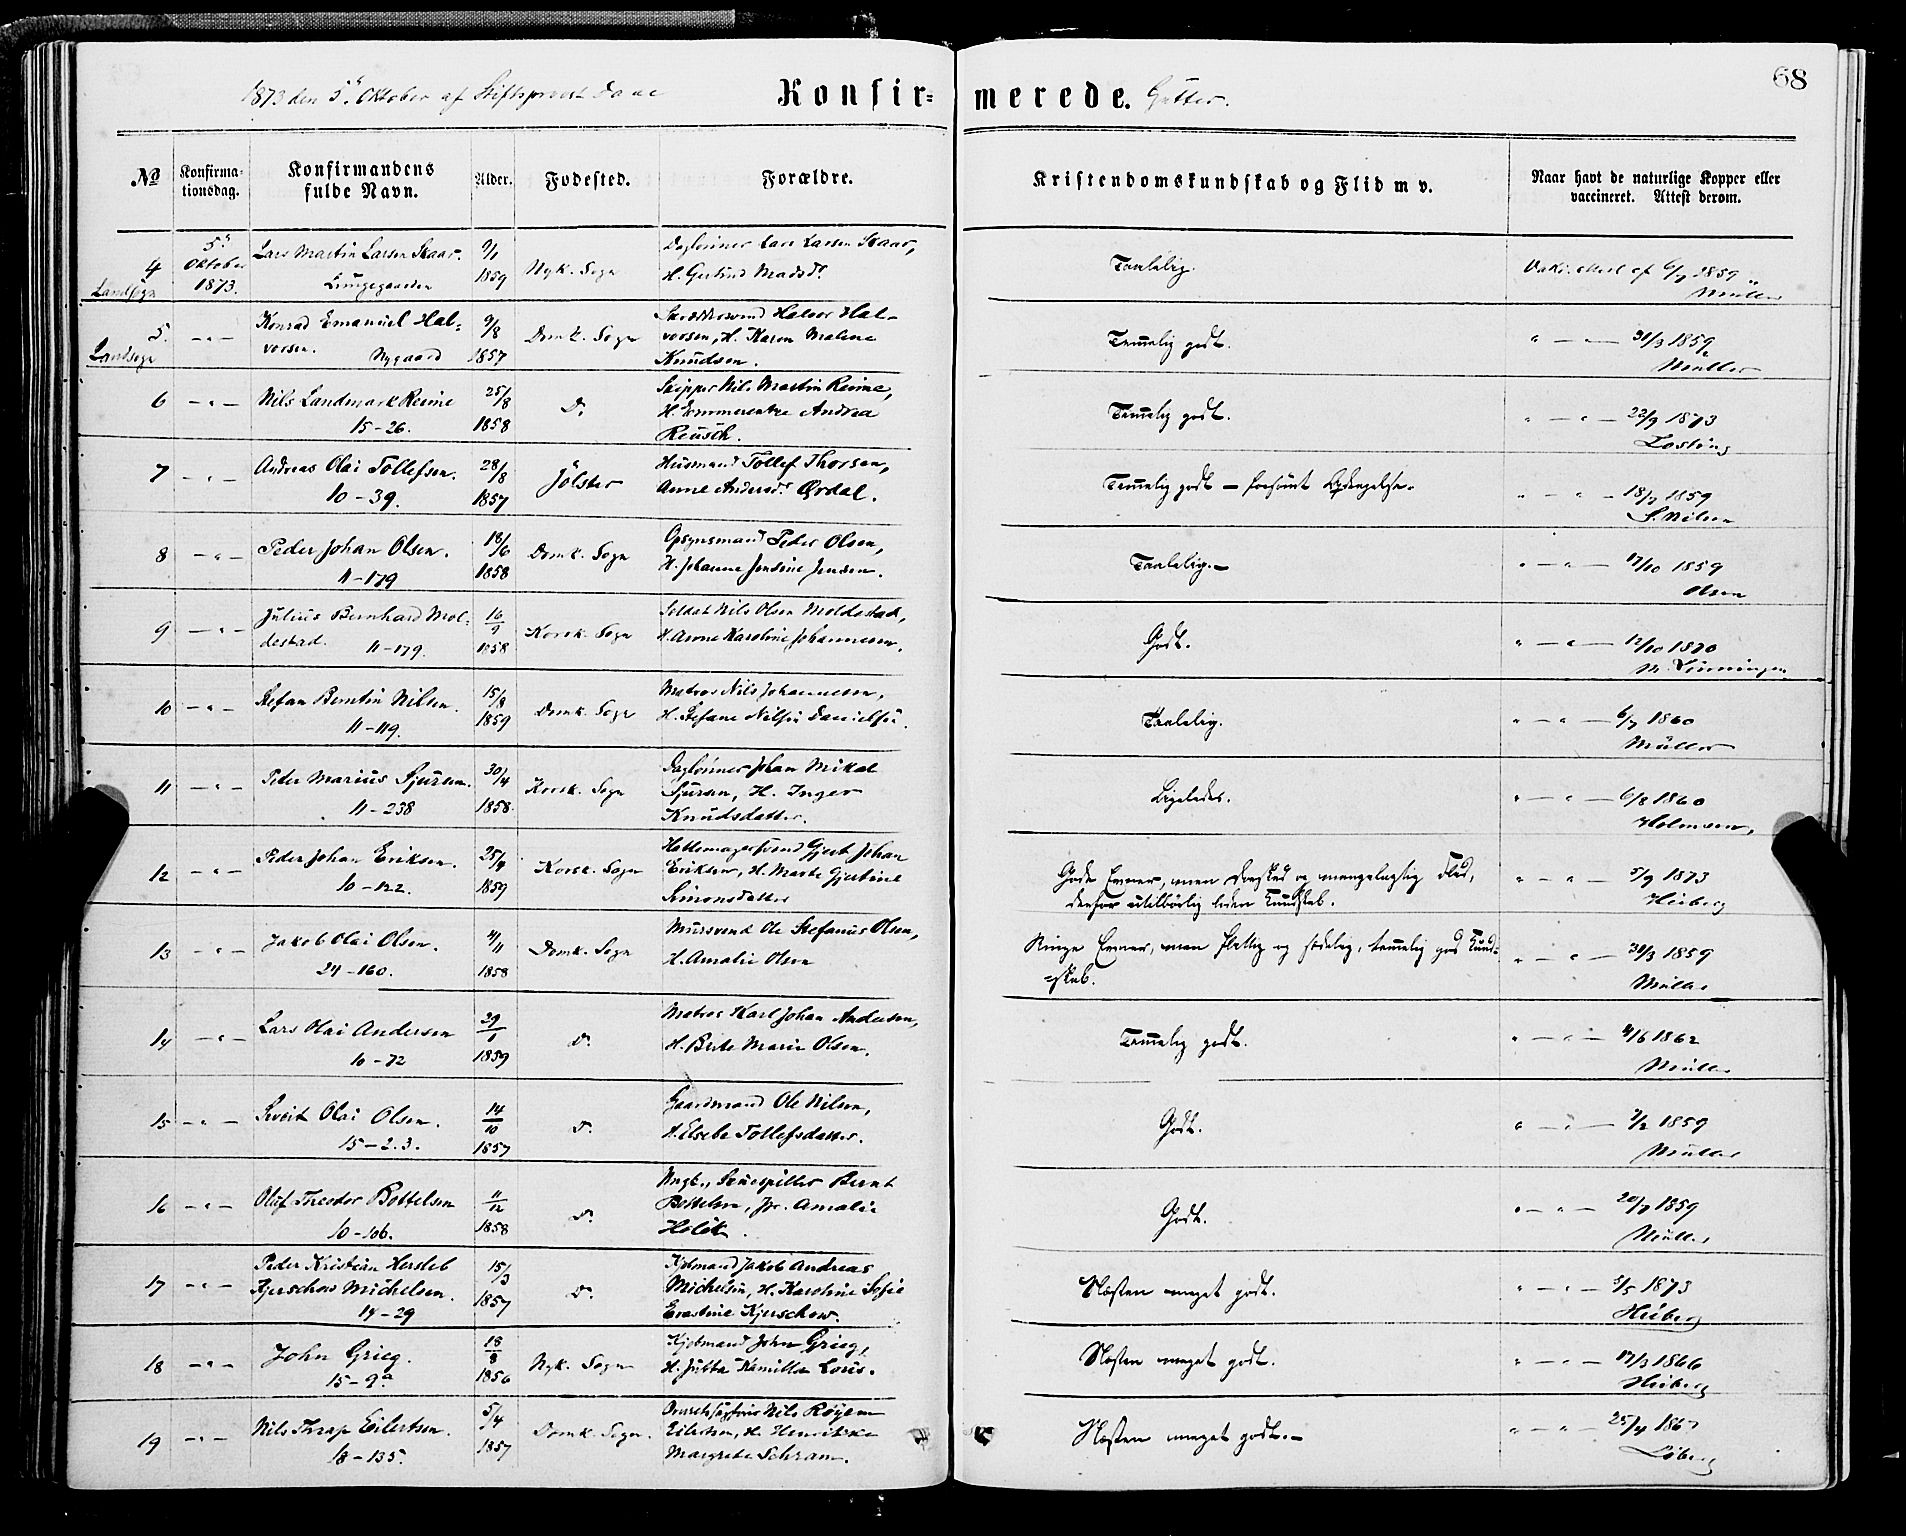 1873 den 5te Oktober af Stiftsprovst Daae
Konfir=merede. Gutter.
68
No
Konfirma-tionsdag.
Konfirmandens fulde Navn.
Alder.
Fødested.
Forældre.
Kristendomskundskab og Flid m v.
Naar havt de naturlige Kopper eller vaccineret. Attest derom.
4 Landsogn 5te Oktober 1873. Lars Martin Larsen Skaar- Lungegaarden 9/1 1859 Nyk. Sogn Daglønner Lars Larsen Skaar, H. Gertrud Madsdr Taalelig. Vakc. Attest af 6/7 1859 Müller
5. Landsogn -"- Konrad Emanuel Halvorsen. Nygaard 9/8 1857 Domk. Sogn Halvor Halvorsen, H. Karen Malene Knudsen. Temmelig godt. " — " — 31/3 1859 Müller
6 -"- Nils Landmark Reime 15-26. 25/8 1858 Do Skipper Nils Martin Reime, H. Emmerentze Andrea Reusch. Temmelig godt. " — " — 22/9 1873
7 -"- Andreas Olai Tollefsen. 10-39. 28/8 1857 Jölster Husmand Tollef Thorsen, Anne Andersdr Ordal. Temmelig godt — forsømt " — " — 18/7 1859 S. Nilsen
8 -"- Peder Johan Olsen. 11-179 18/6 1858 Domk. Sogn Opsynsmand Peder Olsen, H. Johanne Jensine Jensen. Taalelig.- " — " — 17/10 1859 Olsen
9 -"- Julius Bernhard Moldestad. 11-179. 16/9 1858 Korsk. Sogn Soldat Nils Olsen Moldestad, H. Anne Karoline Johannesen. Godt. " — " — 12/10 1870
10 -"- Stefan Berntin Nilsen. 11-119. 15/8 1859 Domk. Sogn Matros Nils Johannesen, H. Stefane Danielsen. Taalelig. " — " — 6/7 1860 Müller
11 -"- Peder Marius Sjursen. 11-238 30/4 1858. Korsk. Sogn Daglønner Johan Mikal Sjursen, H. Inger Knudsdatter. Ligeledes. " — " — 6/8 1860 Holmsen,
12 -"- Peder Johan Eriksen. 10-122. 25/4 1859 Korsk. Sogn Hattemagersvend Gjert Johan Eriksen, H. Marte Gjertine Simonsdatter Gode Evner, men Dorskhed og mangelagtig Flid, derfor utilbørlig liden Kundskab. " — " — 5/9 1873 Heiberg
13 -"- Jakob Olai Olsen. 24-160. 4/11 1858 Domk. Sogn Mursvend Ole Stefanus Olsen, H. Amalie Olsen Ringe Evner, men flittig og sædelig, temmelig god Kundskab. " — " — 31/3 1859 Müller
14 -"- Lars Olai Andersen 10-72 29/1 1859 Do Matros Karl Johan Andersen, H. Berte Marie Olsen. Temmelig godt. " — " — 4/6 1862 Müller
15 -"- Sivert Olai Olsen. 15-2.3. 14/10 1857 Do Gaardmand Ole Nilsen, H. Elsebe Tollefsdatter. Godt. " — " — 7/2 1859 Müller
16 -"- Oluf Theodor Bottelsen 10-106. 11/12 1858 Do Ungk., Skuespiller Bernt Bottelsen, Amalie Godt. " — " — 20/7 1859 Müller
17 -"- Peder Kristian Hersleb Kjerschow Michelsen. 14-29 15/3 1857 Do Kjøbmand Jakob Andreas Michelsen, H. Karoline Sofie Erastine Kjerschow. Næsten meget godt. " — " — 5/5 1873 Heiberg
18 -"- John Grieg. 15-9a 18/8 1856 Nyk. Sogn Kjøbmand John Grieg, H. Jutta Kamilla Louis. Næsten meget godt. " — " — 17/3 1866 Heiberg
19 -"- Nils Thrap Eilertsen. 18-135. 5/4 1857 Domk. Sogn. Nils Røyem Eilertsen, H. Henrikke Margrete Schram. Næsten meget godt.- " — " — 25/4 186 Løberg